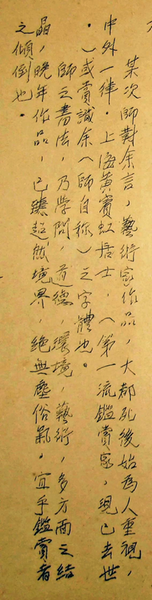 某次師對余言,藝術家作品,大都死後始為人重視,
中外一律。上海黃賓虹居士,(第一流鑑賞家,現已去世
。)或賞識余(師自称)之字體也。
師之書法,乃學問,道德,環境,藝術,多方面之結
晶,晚年作品,已臻超然境界,絕無塵俗氣,宜乎鑑賞者
之傾倒也。